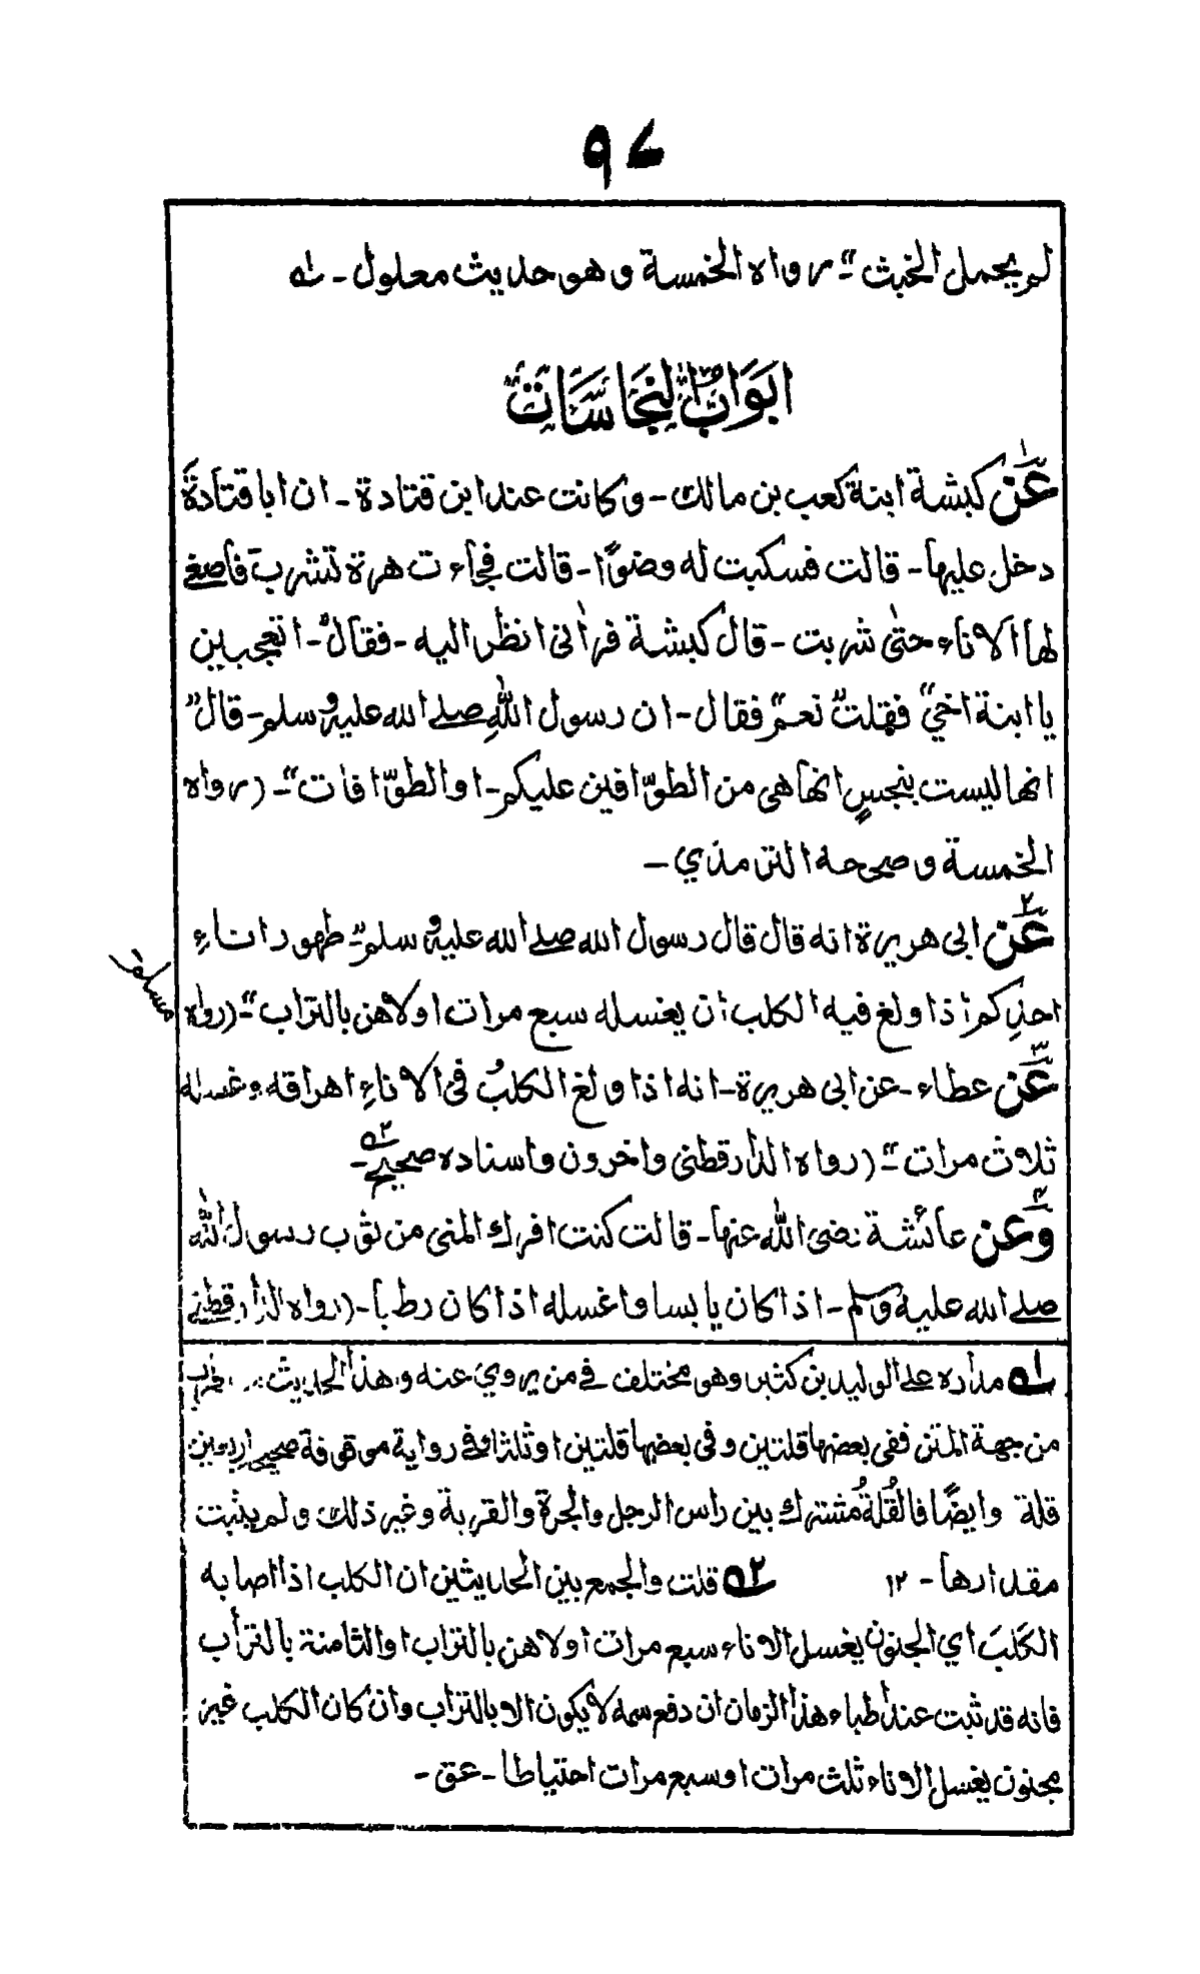 ٩٤
لم يحمل الخبث"۔ رواه الخمسة وهو حديث معلول۔ ١ه
ابواب النجاسات
١
عن كبشة ابنة كعب بن مالك۔ وكانت عند ابن قتادة۔ ان ابا قتادة
دخل عليها۔ قالت فسكبت له وضوًا۔ قالت فجاءت هرة تشرب فاصغے
لها الاناء حتىٰ شربت۔ قال كبشة فراٰنی انظر اليه۔ فقال"۔ اتعجبين
يا ابنة اخي" فقلت" نعم" فقال۔ ان رسول اللهِ صلے الله عليه وسلم۔ قال"
انها ليست بنجسٍ انها هی من الطوّافين عليكم۔ او الطوّافات"۔ (رواه
الخمسة وصححه الترمذي۔
٢
عن ابی هريرة انه قال قال رسول الله صلے الله عليه وسلم"۔ طهور اناءِ
احدِكم اذا ولغ فيه الكلب ان يغسله سبع مرات اولاهن بالتراب"۔ (رواه
مسلم)
٣
عن عطاء۔ عن ابی هريرة۔ انه اذا ولغ الكلبُ فی الاناءِ اهراقه وغسله
ثلاث مرات"۔ (رواه الدارقطنی واخرون واسناده صحيح۔ ٢ه
٤
وعن عائشة رضی الله عنها۔ قالت كنت افرك المنی من ثوب رسول الله
صلے الله عليه وسلم۔ اذا كان يابسا واغسله اذا كان رطبا۔ (رواه الدارقطنے
١ه مداره علے الوليد بن كثير وهو مختلف فے من يروي عنه وهذا الحديث
من جهة المتن ففی بعضها قلتين وفی بعضها قلتين او ثلثا وفے رواية موقوفة صحيح اربعين
قلة وايضًا فالقُلةُ مُشترك بين راس الرجل والجرة والقربة وغير ذلك ولم يثبت
مقدارها۔ ١٢ ٢ه قلت والجمع بين الحديثين ان الكلب اذا اصابه
الكَلبَ اي الجنون يغسل الاناء سبع مرات اولاهن بالتراب او الثامنة بالتراب
فانه قد ثبت عند اطباء هذا الزمان ان دفع سمه لا يكون الا بالتراب وان كان الكلب غير
مجنون يغسل الاناء ثلث مرات او سبع مرات احتياطا۔ عق۔